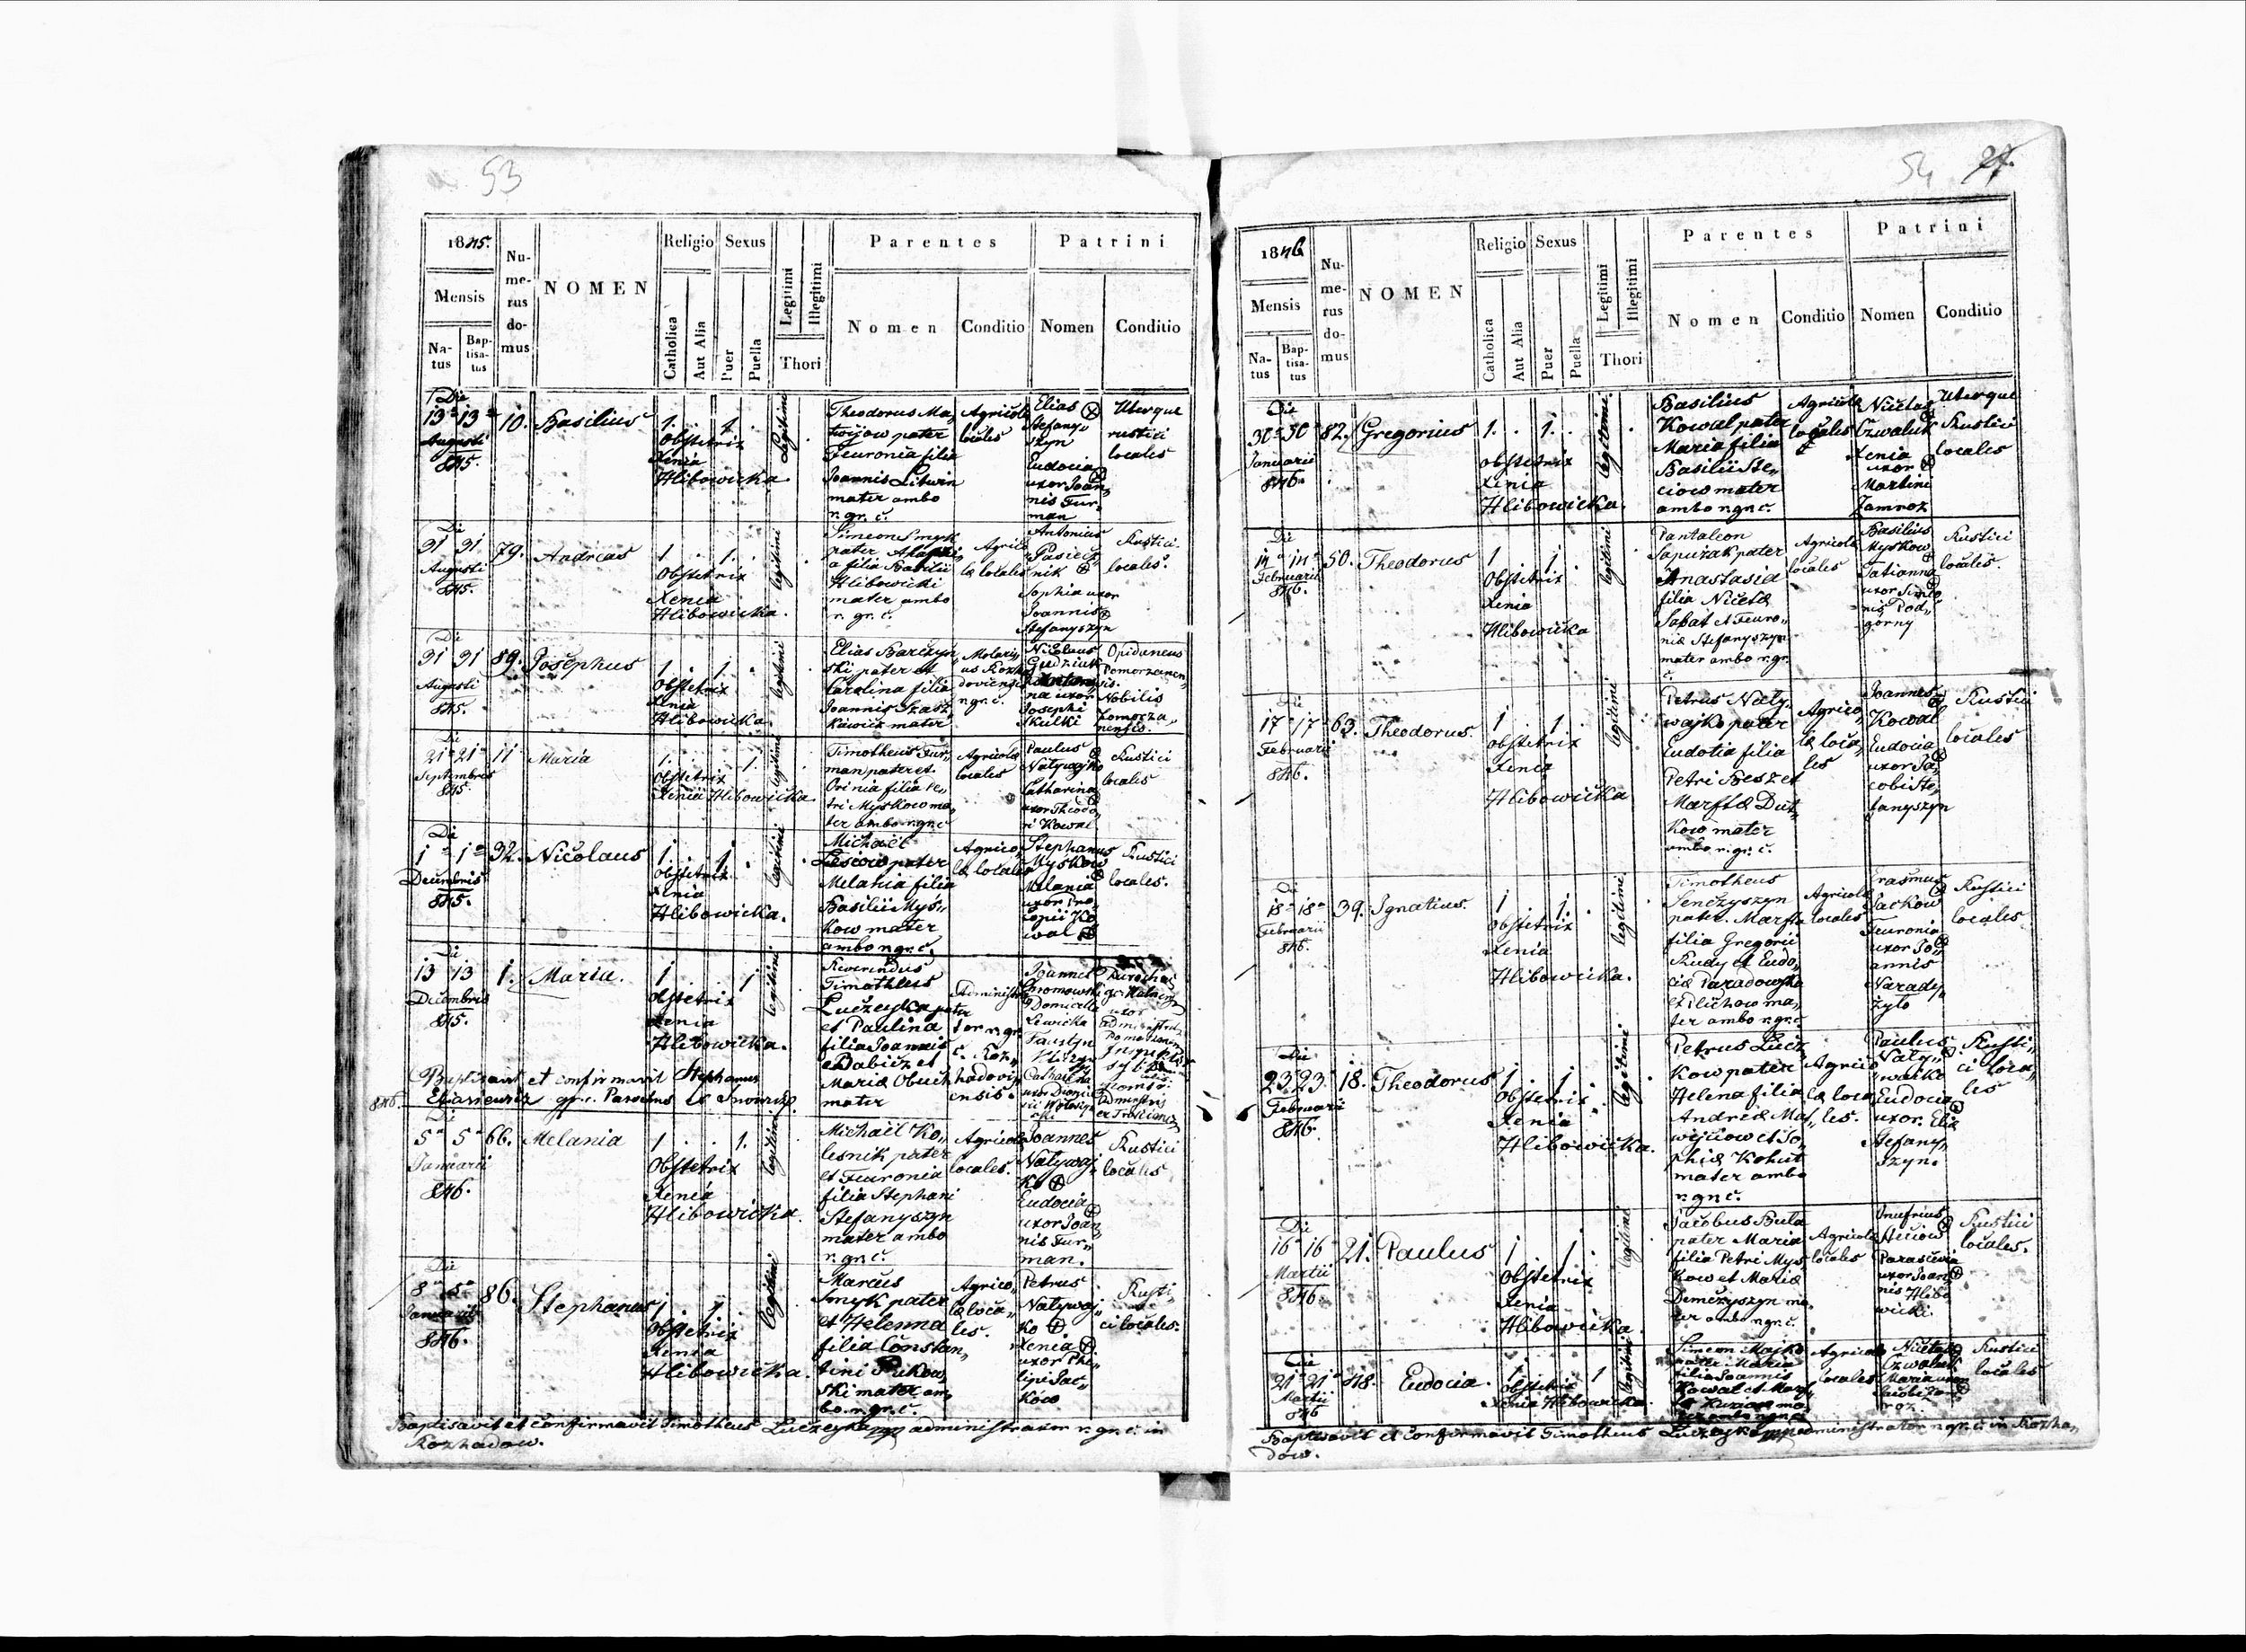 53
1845.
Mensis
Na-
tus
Bap-
tisa-
tus
Nu-
me-
rus
do-
mus
NOMEN
Religio
Catholica
Aut Alia
Sexus
Puer
Puella
Legitimi
Illegitimi
Thori
Parentes
Nomen
Conditio
Patrini
Nomen
Conditio
Die
13 13
Augusti
845.
10. Basilius
1. 1.
Obstetrix
Xenia
Hlibowicka
Legitimi
Theodorus Ma,
twijow pater
Feuronia filia
Joannis Litwin
mater ambo
r. gr. c.
Agricolæ
locales
Elias
Stefany
szyn
Eudocia
uxor Joan,
nis Fur,
man
Uterque
rustici
locales
Die
31 31
Augusti
845.
79. Andreas
1 1.
Obstetrix
Xenia
Hlibowicka.
legitimi
Simeon Smyk
pater
a filia Basilii
Hlibowicki
mater ambo
r. gr. c.
Agrico
læ locales
Antonius
Pasiecz
nik
Sophia uxor
Joannis
Stefanyszyn
Rustici
locales.
Die
31 31
Augusti
845.
89. Josephus
1. 1.
Obstetrix
Xenia
Hlibowicka.
legitimi
Elias Barczyn
ski pater et
Carolina filia
Joannis Szasz
kiewicz mater
Nicolaus
na uxor
Josephi
Skulki
Nobilis
Die
21 21
Septembris
845
11 Maria
1. 1.
Obstetrix
Xenia Hlibowicka.
legitimi
Timotheus Fur,
man pater et
Orinia filia Pe,
tri Myskow ma,
ter ambo r. gr. c.
Agricolæ
locales
Paulus
Natywajko
Catharina
uxor Theodo,
ri Kowal
Rustici
locales
Die
1 1
Decembris
845.
32. Nicolaus
1. 1.
Obstetrix
Xenia
Hlibowicka.
legitimi
Michaël
Lesciow pater
Melania filia
Basilii Mys,
kow mater
ambo r. gr. c.
Agrico,
læ locales
Stephanus
Myskow
Melania
uxor Pro,
copii Ko
wal
Rustici
locales.
Die
13 13
Decembris
845.
1. Maria.
1 1
Obstetrix
Xenia
Hlibowicka.
legitimi
Reverendus
Timotheus
Luczeyko pater
et Paulina
filia Joannis
Babicz et
Mariæ
mater
Administra
tor r. gr.
c. Roz,
hadovi,
ensis.
Joannes
Domicella
Lewicka
Baptisavit et confirmavit Stephanus
gr. c. Parochus
846.
Die
5 5
Januarii
846.
66. Melania
1 1.
Obstetrix
Xenia
Hlibowicka.
legitimi
Michaël Ko,
lesnik pater
et Feuronia
filia Stephani
Stefanyszyn
mater ambo
r. gr. c.
Agricolæ
locales.
Joannes
Natywaj
ko
Eudocia
uxor Joan,
nis Fur,
man.
Rustici
locales
Die
8
Januarii
846.
86. Stephanus
1 1
Obstetrix
Xenia
Hlibowicka.
legitimi
Marcus
Smyk pater
et Helenna
filia Constan,
tini Rukow,
ski mater am,
bo r. gr. c.
Agrico,
læ loca,
les.
Petrus
Natywaj,
ko
Xenia
uxor Phi,
lipi Sac,
ków
Rusti,
ci locales.
Baptisavit et confirmavit Timotheus Luczeyko administrator r. gr. c. in
Rozhadow.
54 27.
1846
Mensis
Na-
tus
Bap-
tisa-
tus
Nu-
me-
rus
do-
mus
NOMEN
Religio
Catholica
Aut Alia
Sexus
Puer
Puella
Legitimi
Illegitimi
Thori
Parentes
Nomen
Conditio
Patrini
Nomen
Conditio
Die
30 30
Januarii
846.
82. Gregorius
1. 1.
Obstetrix
Xenia
Hlibowicka.
legitimi
Basilius
Kowal pater
Maria filia
Basilii Ste,
ciow mater
ambo r. gr. c.
Agricolæ
locales
Nicetas
Czwaluk
Xenia
uxor
Martini
Zamroz
Uterque
Rustici
locales
Die
14 14
Februarii
846.
50. Theodorus
1 1
Obstetrix
Xenia
Hlibowicka
legitimi
Pantaleon
Sapuzak pater
Anastasia
filia Nicetæ
Sabat et Feuro,
niæ Stefanyszyn
mater ambo r. gr.
c.
Agricolæ
locales
Basilius
Myskow
Tatianna
uxor Simeo
nis Pod,
gorny
Rustici
locales.
Die
17 17
Februarii
846.
63. Theodorus.
1 1
Obstetrix
Xenia
Hlibowicka
legitimi
Petrus Naty,
wajko pater
Eudotia filia
Petri Besz et
Marftæ Dut,
kow mater
ambo r. gr. c.
Agrico,
læ loca,
les
Joannes
Kowal
Eudocia
uxor Ja,
cobi Ste,
fanyszyn
Rustici
locales
Die
18 18
Februarii
846.
39. Ignatius.
1 1
Obstetrix
Xenia
Hlibowicka.
legitimi
Timotheus
Senczyszyn
pater. Marfta
filia Gregorii
Rudy et Eudo,
ciæ Paradowska
mater
ambo r. gr. c.
Agricolæ
locales
Erasmus
Sackow
Feuronia
uxor Jo,
annis
Narady,
zyto
Rustici
locales
Die
23 23
Februarii
846.
18. Theodorus
1 1
Obstetrix
Xenia
Hlibowicka.
legitimi
Petrus Lucz
kow pater
Helena filia
Andreæ Mat,
wijciow et So,
phiæ Kohut
mater ambo
r. gr. c.
Agrico
læ loca
les.
Paulus
Naty,
wajko
Eudocia
uxor Eliæ
Stefany,
szyn.
Rusti,
ci loca,
les
Die
16 16
Martii
846.
21. Paulus
1 1
Obstetrix
Xenia
Hlibowicka.
legitimi
Jacobus Bula
pater Maria
filia Petri Mys,
kow et Mariæ
Demczyszyn ma,
ter ambo r. gr. c.
Agricolæ
locales
Onufrius
Huciow
Parascevia
uxor Joan,
nis Hlibo,
wicki.
Rustici
locales.
Die
21 21
Martii
846
48. Eudocia.
1 1
Obstetrix
Xenia Hlibowicka.
legitimi
Simeon Majko
pater Maria
filia Joannis
Kowal et
Agricolæ
locales
Nicetas
Czwaluk
Maria uxor
Rustici
locales
Baptisavit et confirmavit Timotheus Luczeyko administrator r. gr. c. in Rozha,
dow.